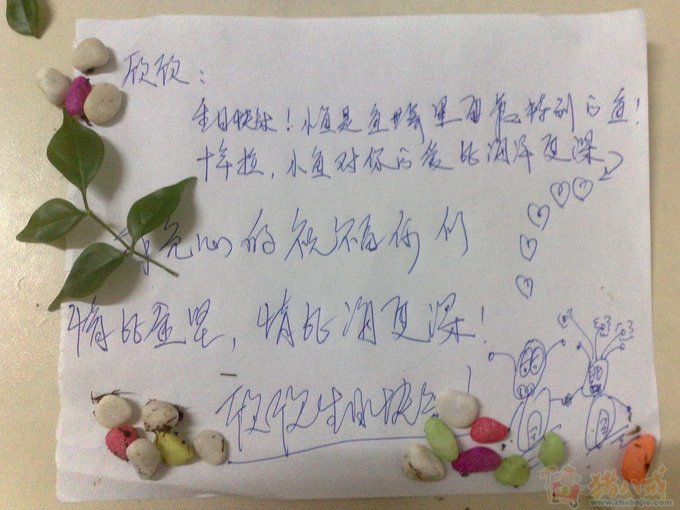 欣欣：
生日快乐！小鱼是鱼塘里面最特别的鱼！
十年拉，小鱼对你的爱比海洋更深
心的祝福你们
情比金坚，情比海更深！
欣欣生日快乐！
猪八戒
www.zhubajie.com